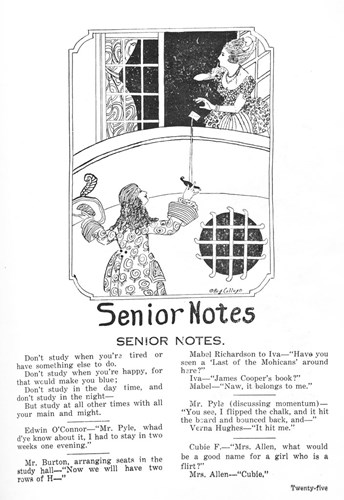 Senior Notes
SENIOR NOTES.
Don't study when you're tired or
have something else to do.
Don't study when you're happy, for
that would make you blue;
Don't study in the day time, and
don't study in the night—
But study at all other times with all
your main and might.
Edwin O'Connor—"Mr. Pyle, what
d'ye know about it, I had to stay in two
weeks one evening."
Mr. Burton, arranging seats in the
study hall—"Now we will have two
rows of H—"
Mabel Richardson to Iva—"Have you
seen a 'Last of the Mohicans' around
here?"
Iva—"James Cooper's book?"
Mabel—"Naw, it belongs to me."
Mr. Pyle (discussing momentum)—
"You see, I flipped the chalk, and it hit
the board and bounced back, and—"
Verna Hughes—"It hit me."
Cubie F.—"Mrs. Allen, what would
be a good name for a girl who is a
flirt?"
Mrs. Allen—"Cubie."
Twenty-five